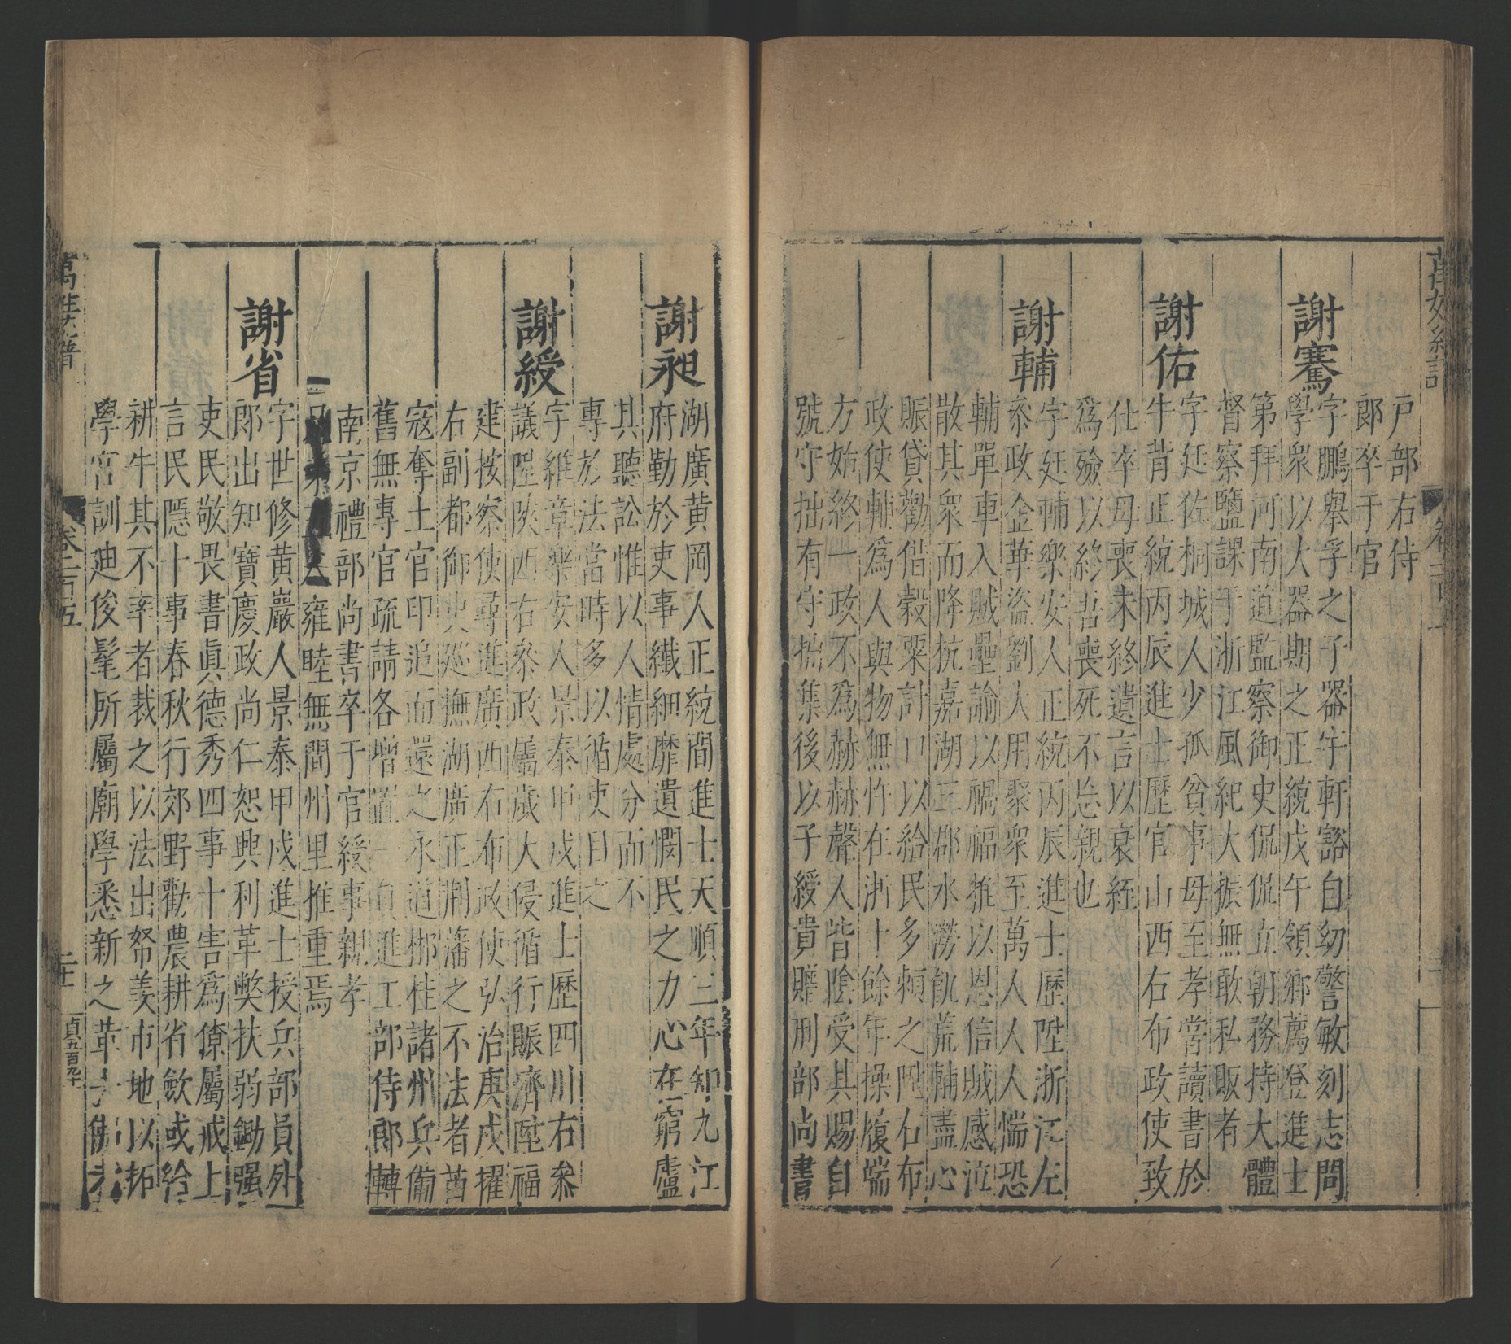 戶部右侍
郎卒于官
謝騫
字鵬舉孚之子器宇軒豁自幼警敏刻志問
學衆以大器期之正統戊午領鄉薦登進士
第拜河南道監察御史侃侃立朝務持大體
督察鹽課于浙江風紀大振無敢私販者
謝佑
字延佐桐城人少孤貧事母至孝嘗讀書於
牛背正統丙辰進士歷官山西右布政使致
仕卒母喪未終遺言以衰絰
爲殮以終吾喪死不忘親也
謝輔
字廷輔樂安人正統丙辰進士歷陞浙江左
叅政金華盜劉大用聚衆至萬人人人惴恐
輔單車入賊壘諭以禍福推以恩信賊感泣
散其衆而降杭嘉湖三郡水澇飢荒輔盡心
賑貸勸借穀粟計口以給民多頼之陞右布
政使輔爲人與物無忤在浙十餘年操履端
方始終一政不爲赫赫聲人皆陰受其賜自
號守拙有守拙集後以子綬貴贈刑部尚書
謝昶
湖廣黄岡人正統間進士天順三年知九江
府勤於吏事纖細靡遺憫民之力心在窮廬
其聽訟惟以人情處分而不
專於法當時多以循吏目之
謝綬
字維章樂安人景泰甲戌進士歷四川右叅
議陞陝西右叅政屬歲大侵循行賑濟陞福
建按察使尋進廣西右布政使弘治庚戌擢
右副都御史廵撫湖廣正閫藩之不法者酋
寇奪土官印追而還之永道郴桂諸州兵備
舊無專官疏請各增置一員進工部侍郎轉
南京禮部尚書卒于官綬事親孝
雍睦無間州里推重焉
謝省
字世修黄巖人景泰甲戌進士授兵部員外
郎出知寶慶政尚仁恕興利革弊扶弱鋤强
吏民敬畏書眞德秀四事十害爲僚屬戒上
言民隱十事春秋行郊野勸農耕省斂或給
耕牛其不率者裁之以法出帑羨市地以拓
學宮訓廸俊髦所屬廟學悉新之革
卷一百五